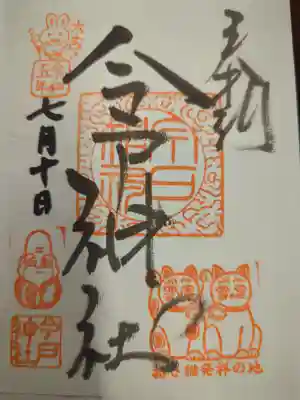 奉拝
今戸神社
七月十日
今戸神社
招き猫発祥の地